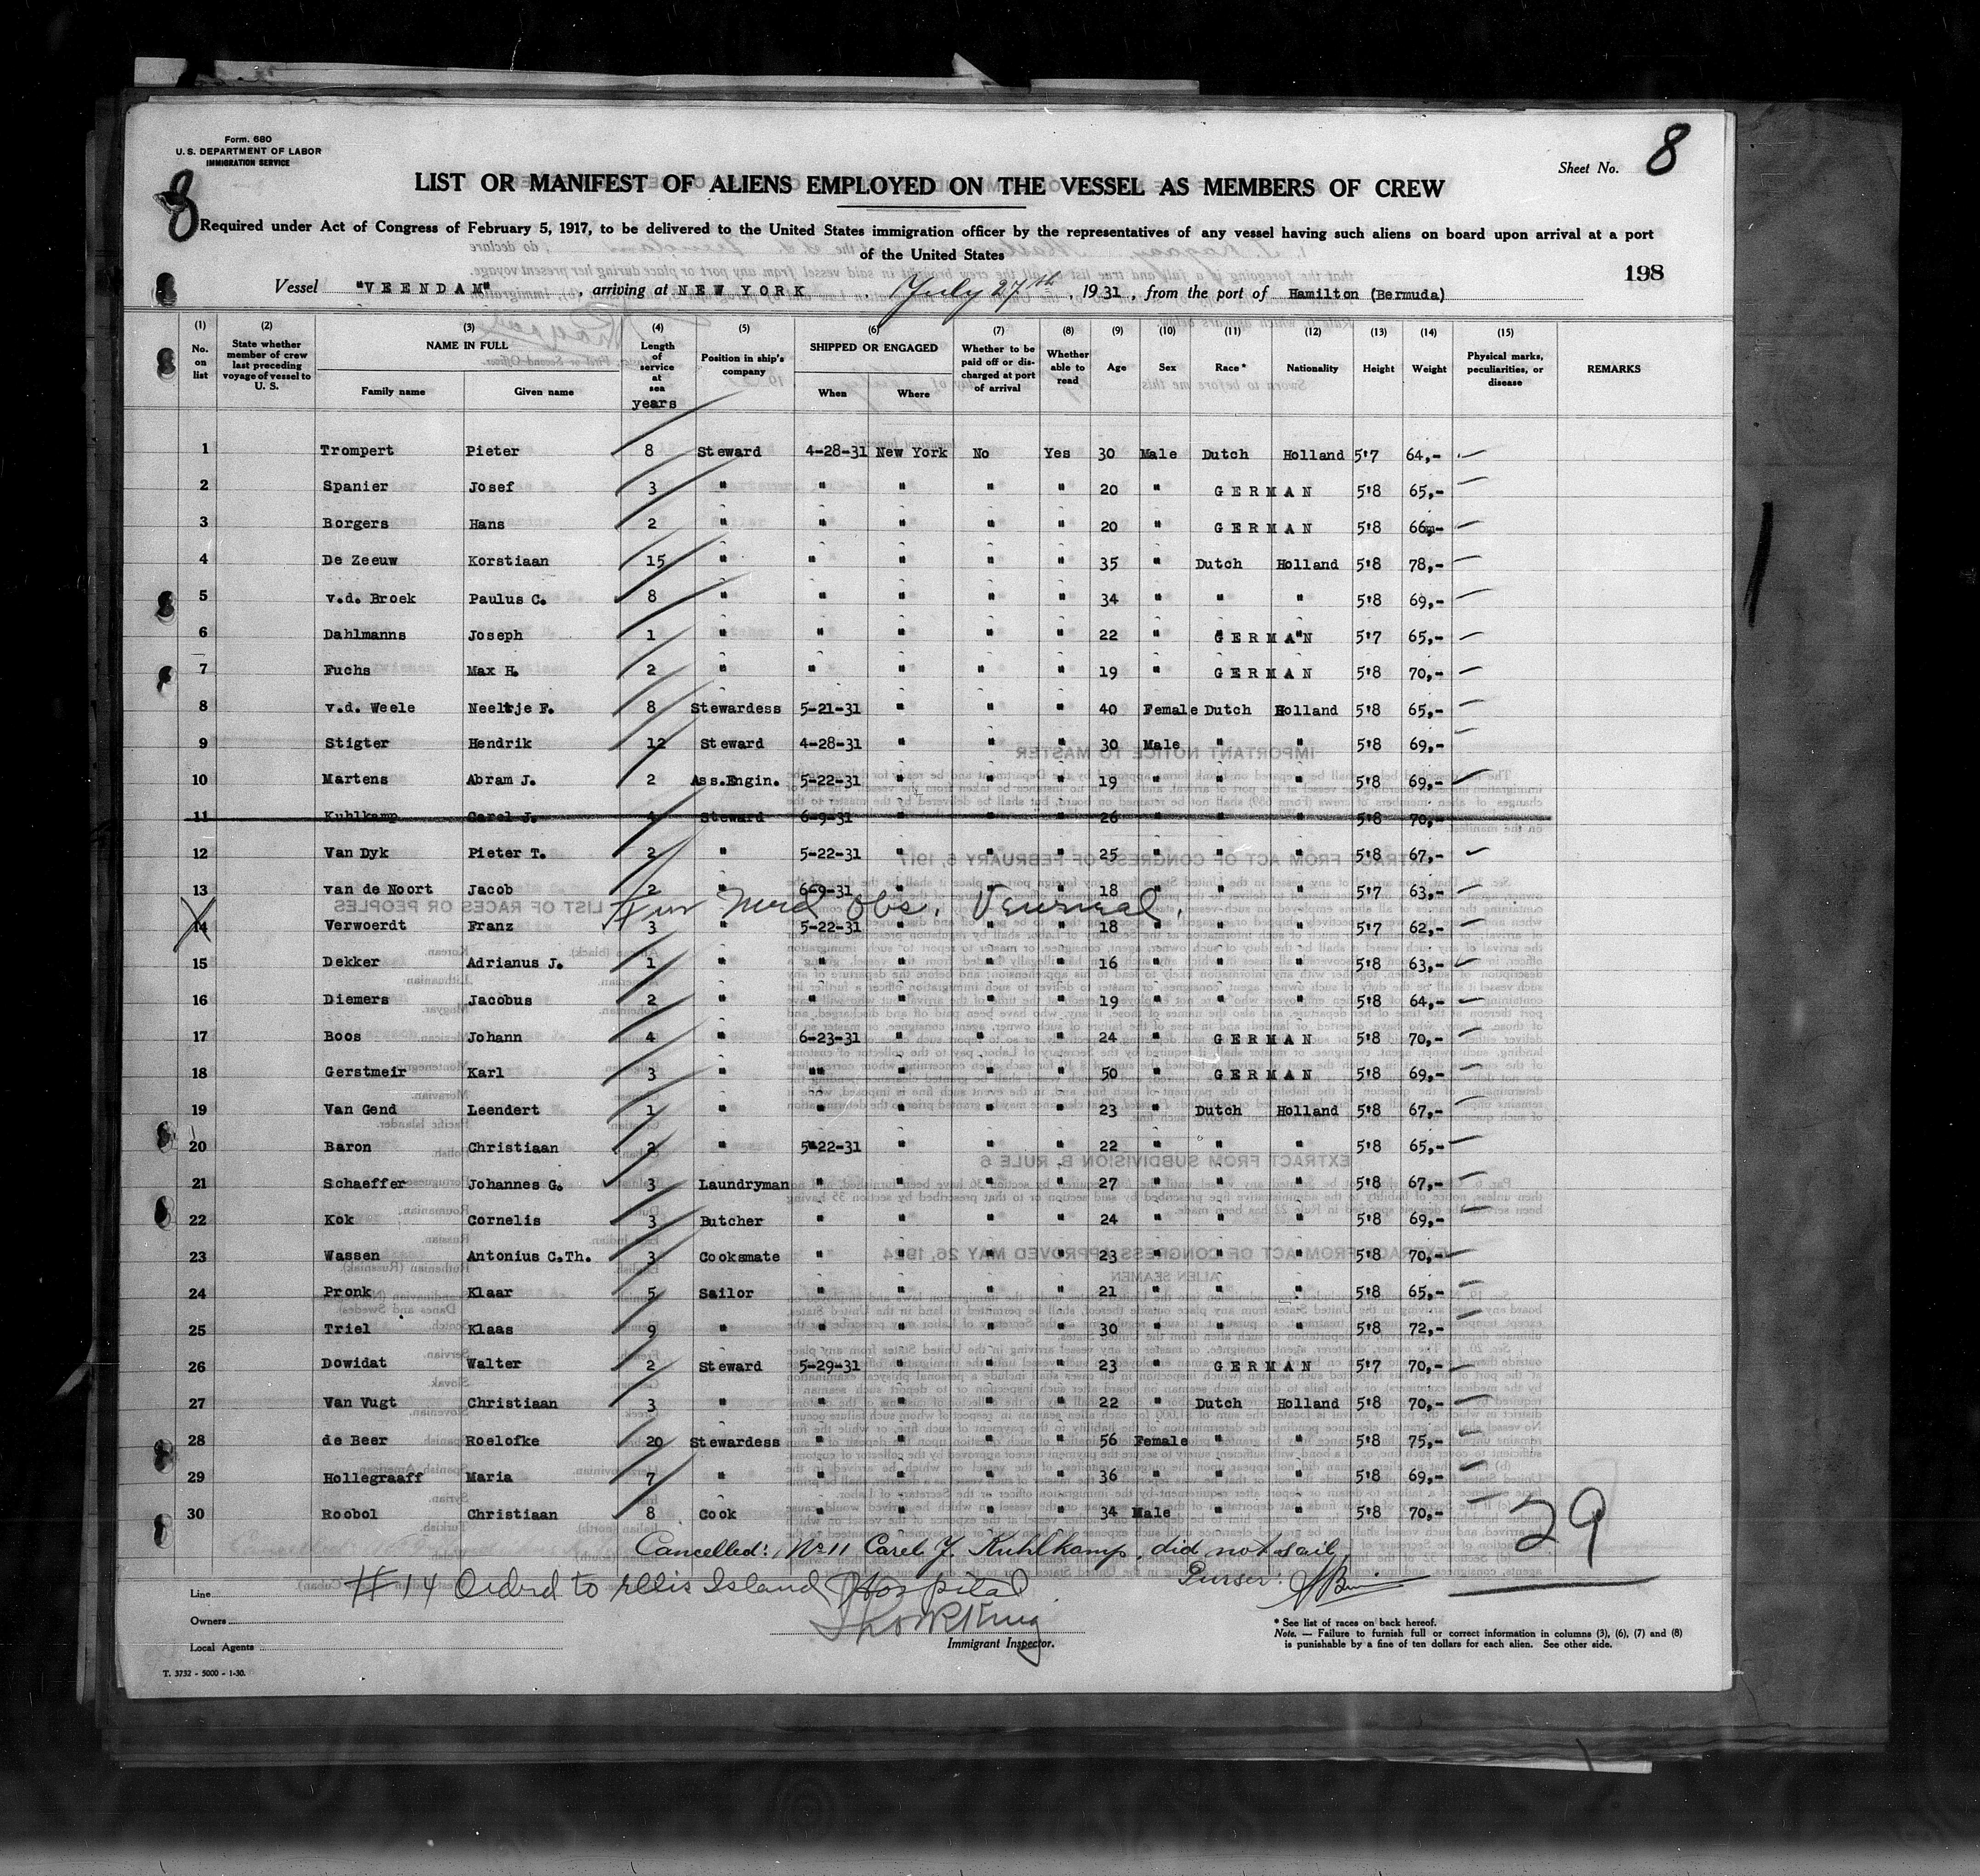 Form. 680
U. S. DEPARTMENT OF LABOR
IMMIGRATION SERVICE
8
Sheet No. 8
LIST OR MANIFEST OF ALIENS EMPLOYED ON THE VESSEL AS MEMBERS OF CREW
Required under Act of Congress of February 5, 1917, to be delivered to the United States immigration officer by the representatives of any vessel having such aliens on board upon arrival at a port
of the United States
198
Vessel "VEENDAM", arriving at NEW YORK, July 27th, 1931, from the port of Hamilton (Bermuda)
(1) No. on list (2) State whether member of crew last preceding voyage of vessel to U. S. (3) NAME IN FULL Family name Given name (4) Length of service at sea years (5) Position in ship's company (6) SHIPPED OR ENGAGED When Where (7) Whether to be paid off or discharged at port of arrival (8) Whether able to read (9) Age (10) Sex (11) Race* (12) Nationality (13) Height (14) Weight (15) Physical marks, peculiarities, or disease REMARKS
1 Trompert Pieter 8 Steward 4-28-31 New York No Yes 30 Male Dutch Holland 5'7 64,-
2 Spanier Josef 3 " " " " " 20 " GERMAN 5'8 65,-
3 Borgers Hans 2 " " " " " 20 " GERMAN 5'8 66,-
4 De Zeeuw Korstiaan 15 " " " " " 35 " Dutch Holland 5'8 78,-
5 v.d. Broek Paulus C. 8 " " " " " 34 " " " 5'8 69,-
6 Dahlmanns Joseph 1 " " " " " 22 " GERMAN 5'7 65,-
7 Fuchs Max H. 2 " " " " " 19 " GERMAN 5'8 70,-
8 v.d. Weele Neeltje F. 8 Stewardess 5-21-31 " " " 40 Female Dutch Holland 5'8 65,-
9 Stigter Hendrik 12 Steward 4-28-31 " " " 30 Male " " 5'8 69,-
10 Martens Abram J. 2 Ass.Engin. 5-22-31 " " " 19 " " " 5'8 69,-
11 Kuhlkamp Carel J. 4 Steward 6-9-31 " " " 26 " " " 5'8 70,-
12 Van Dyk Pieter T. 2 " 5-22-31 " " " 25 " " " 5'8 67,-
13 van de Noort Jacob 2 " 6-9-31 " " " 18 " " " 5'7 63,-
For Med Obs. Venereal.
14 Verwoerdt Franz 3 " 5-22-31 " " " 18 " " " 5'7 62,-
15 Dekker Adrianus J. 1 " " " " " 16 " " " 5'8 63,-
16 Diemers Jacobus 2 " " " " " 19 " " " 5'8 64,-
17 Boos Johann 4 " 6-23-31 " " " 24 " GERMAN 5'8 70,-
18 Gerstmeir Karl 3 " "" " " " 50 " GERMAN 5'8 69,-
19 Van Gend Leendert 1 " " " " " 23 " Dutch Holland 5'8 67,-
20 Baron Christiaan 2 " 5-22-31 " " " 22 " " " 5'8 65,-
21 Schaeffer Johannes G. 3 Laundryman " " " " 27 " " " 5'8 67,-
22 Kok Cornelis 3 Butcher " " " " 24 " " " 5'8 69,-
23 Wassen Antonius C.Th. 3 Cooksmate " " " " 23 " " " 5'8 70,-
24 Pronk Klaar 5 Sailor " " " " 21 " " " 5'8 65,-
25 Triel Klaas 9 " " " " " 30 " " " 5'8 72,-
26 Dowidat Walter 2 Steward 5-29-31 " " " 23 " GERMAN 5'7 70,-
27 Van Vugt Christiaan 3 " " " " " 22 " Dutch Holland 5'8 70,-
28 de Beer Roelofke 20 Stewardess " " " " 56 Female " " 5'8 75,-
29 Hollegraaff Maria 7 " " " " " 36 " " " 5'8 69,-
30 Roobol Christiaan 8 Cook " " " " 34 Male " " 5'8 70,-
29
Cancelled: No 11 Carel J. Kuhlkamp, did not sail
Purser:
#14 Ordered to Ellis Island Hospital
Line
Owners
Local Agents
Immigrant Inspector.
* See list of races on back hereof.
Note. — Failure to furnish full or correct information in columns (3), (6), (7) and (8)
is punishable by a fine of ten dollars for each alien. See other side.
T. 3732 - 5000 - 1-30.